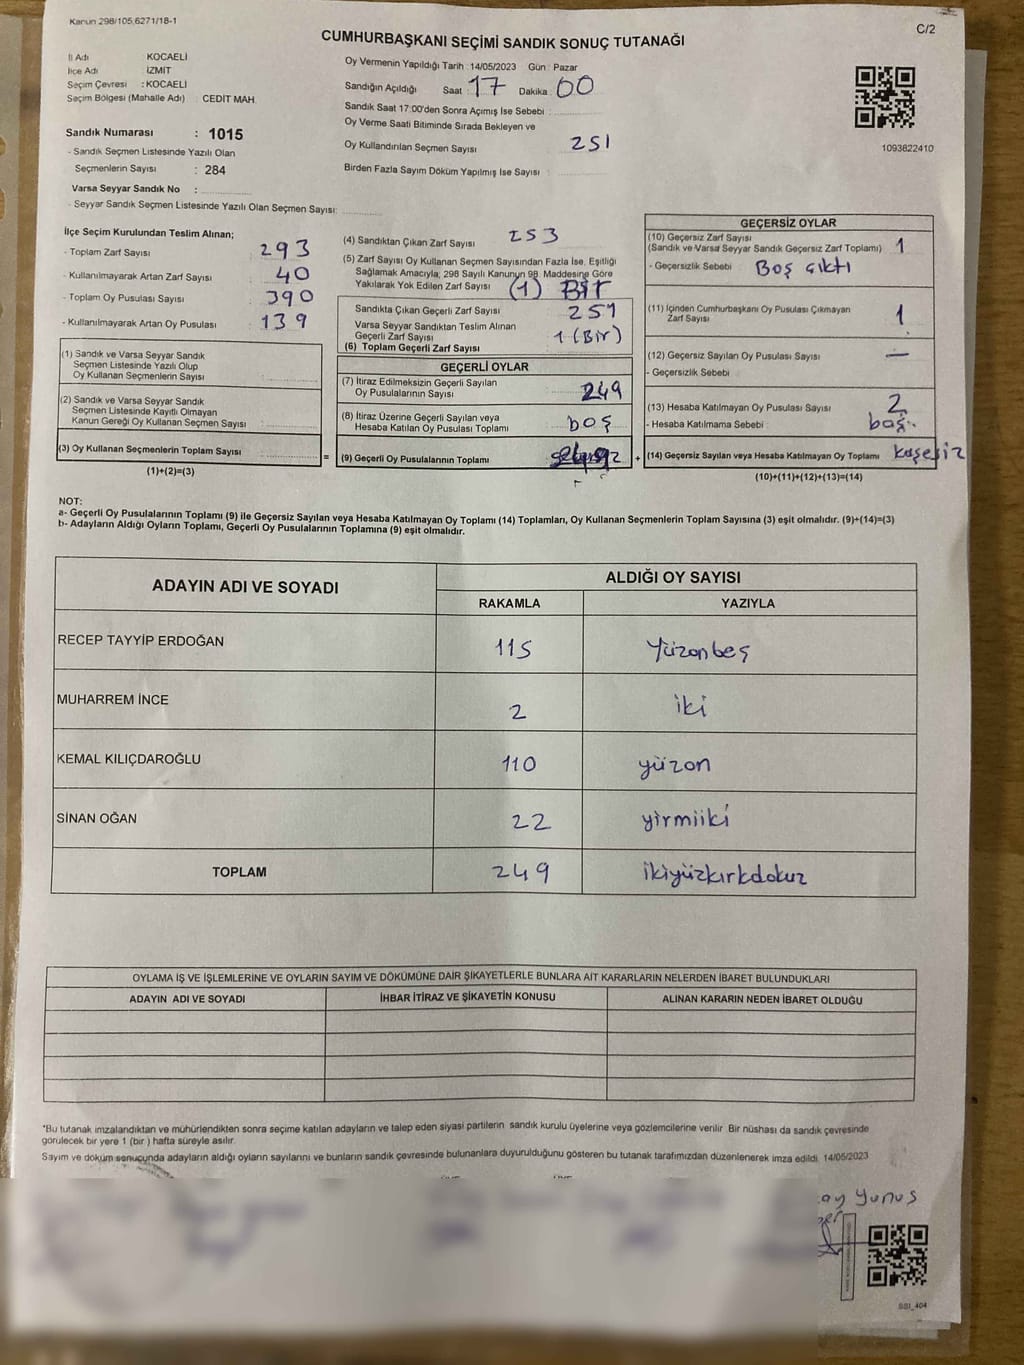 Kanun 298/105,6271/18-1
C/2
CUMHURBAŞKANI SEÇİMİ SANDIK SONUÇ TUTANAĞI
İl Adı KOCAELİ
İlçe Adı İZMİT
Seçim Çevresi : KOCAELİ
Seçim Bölgesi (Mahalle Adı) : CEDİT MAH.
Sandık Numarası : 1015
- Sandık Seçmen Listesinde Yazılı Olan
Seçmenlerin Sayısı : 284
Varsa Seyyar Sandık No :
- Seyyar Sandık Seçmen Listesinde Yazılı Olan Seçmen Sayısı:
Oy Vermenin Yapıldığı Tarih : 14/05/2023 Gün : Pazar
Sandığın Açıldığı Saat : 17 Dakika : 00
Sandık Saat 17:00'den Sonra Açımış İse Sebebi :
Oy Verme Saati Bitiminde Sırada Bekleyen ve
Oy Kullandırılan Seçmen Sayısı 251
Birden Fazla Sayım Döküm Yapılmış İse Sayısı :
1093822410
İlçe Seçim Kurulundan Teslim Alınan;
- Toplam Zarf Sayısı 293
- Kullanılmayarak Artan Zarf Sayısı : 40
- Toplam Oy Pusulası Sayısı : 390
- Kullanılmayarak Artan Oy Pusulası : 139
(1) Sandık ve Varsa Seyyar Sandık
Seçmen Listesinde Yazılı Olup
Oy Kullanan Seçmenlerin Sayısı
(2) Sandık ve Varsa Seyyar Sandık
Seçmen Listesinde Kayıtlı Olmayan
Kanun Gereği Oy Kullanan Seçmen Sayısı
(3) Oy Kullanan Seçmenlerin Toplam Sayısı =
(1)+(2)=(3)
(4) Sandıktan Çıkan Zarf Sayısı 253
(5) Zarf Sayısı Oy Kullanan Seçmen Sayısından Fazla İse, Eşitliği
Sağlamak Amacıyla, 298 Sayılı Kanunun 98. Maddesine Göre
Yakılarak Yok Edilen Zarf Sayısı (1) Bir
Sandıkta Çıkan Geçerli Zarf Sayısı 251
Varsa Seyyar Sandıktan Teslim Alınan
Geçerli Zarf Sayısı 1 (Bir)
(6) Toplam Geçerli Zarf Sayısı
GEÇERLİ OYLAR
(7) İtiraz Edilmeksizin Geçerli Sayılan
Oy Pusulalarının Sayısı 249
(8) İtiraz Üzerine Geçerli Sayılan veya
Hesaba Katılan Oy Pusulası Toplamı boş
(9) Geçerli Oy Pusulalarının Toplamı +
GEÇERSİZ OYLAR
(10) Geçersiz Zarf Sayısı
(Sandık ve Varsa Seyyar Sandık Geçersiz Zarf Toplamı) 1
- Geçersizlik Sebebi Boş çıktı
(11) İçinden Cumhurbaşkanı Oy Pusulası Çıkmayan
Zarf Sayısı 1
(12) Geçersiz Sayılan Oy Pusulası Sayısı –
- Geçersizlik Sebebi
(13) Hesaba Katılmayan Oy Pusulası Sayısı 2
- Hesaba Katılmama Sebebi : boş
(14) Geçersiz Sayılan veya Hesaba Katılmayan Oy Toplamı kaşesiz
(10)+(11)+(12)+(13)=(14)
NOT:
a- Geçerli Oy Pusulalarının Toplamı (9) ile Geçersiz Sayılan veya Hesaba Katılmayan Oy Toplamı (14) Toplamları, Oy Kullanan Seçmenlerin Toplam Sayısına (3) eşit olmalıdır. (9)+(14)=(3)
b- Adayların Aldığı Oyların Toplamı, Geçerli Oy Pusulalarının Toplamına (9) eşit olmalıdır.
ADAYIN ADI VE SOYADI ALDIĞI OY SAYISI
RAKAMLA YAZIYLA
RECEP TAYYİP ERDOĞAN 115 Yüzonbeş
MUHARREM İNCE 2 iki
KEMAL KILIÇDAROĞLU 110 yüzon
SİNAN OĞAN 22 yirmiiki
TOPLAM 249 ikiyüzkırkdokuz
OYLAMA İŞ VE İŞLEMLERİNE VE OYLARIN SAYIM VE DÖKÜMÜNE DAİR ŞİKAYETLERLE BUNLARA AİT KARARLARIN NELERDEN İBARET BULUNDUKLARI
ADAYIN ADI VE SOYADI İHBAR İTİRAZ VE ŞİKAYETİN KONUSU ALINAN KARARIN NEDEN İBARET OLDUĞU
*Bu tutanak imzalandıktan ve mühürlendikten sonra seçime katılan adayların ve talep eden siyasi partilerin sandık kurulu üyelerine veya gözlemcilerine verilir. Bir nüshası da sandık çevresinde
görülecek bir yere 1 (bir ) hafta süreyle asılır.
Sayım ve döküm sonucunda adayların aldığı oyların sayılarını ve bunların sandık çevresinde bulunanlara duyurulduğunu gösteren bu tutanak tarafımızdan düzenlenerek imza edildi. 14/05/2023
Yunus
SSI_404